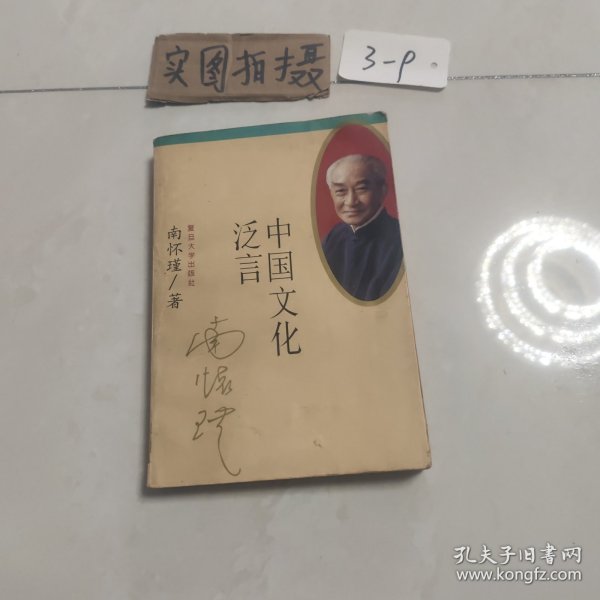 实图拍摄
3-9
中国文化
泛言
复旦大学出版社
南怀瑾/著
南怀瑾
孔夫子旧书网
www.kongfz.com